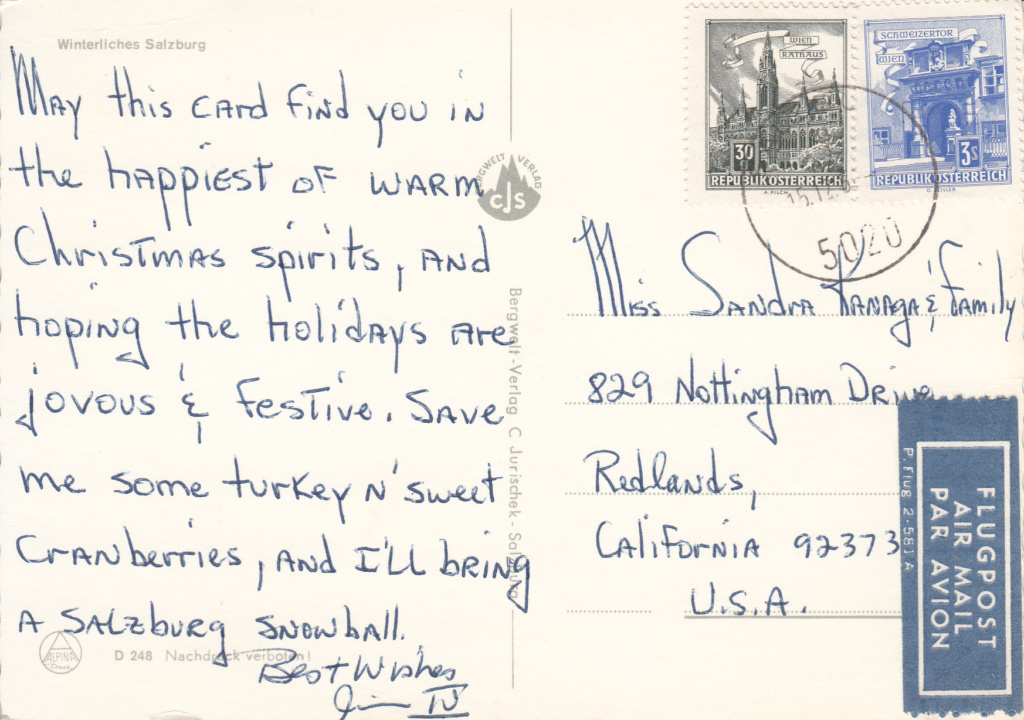 Winterliches Salzburg
May this card find you in
the happiest of warm
Christmas spirits, and
hoping the holidays are
jovous & festive. Save
me some turkey n' sweet
cranberries, and I'll bring
a Salzburg snowball.
Best Wishes
Jim IV
D 248 Nachdruck verboten!
ALPINA
Druck
BERGWELT VERLAG
CJS
Bergwelt-Verlag C Jurischek - Salzburg
WIEN
RATHAUS
30
REPUBLIK ÖSTERREICH
A. PILCH
SCHWEIZERTOR
WIEN
3s
REPUBLIK ÖSTERREICH
15.12.
5020
Miss Sandra Kanaga & Family
829 Nottingham Drive
Redlands,
California 92373
U.S.A.
FLUGPOST
AIR MAIL
PAR AVION